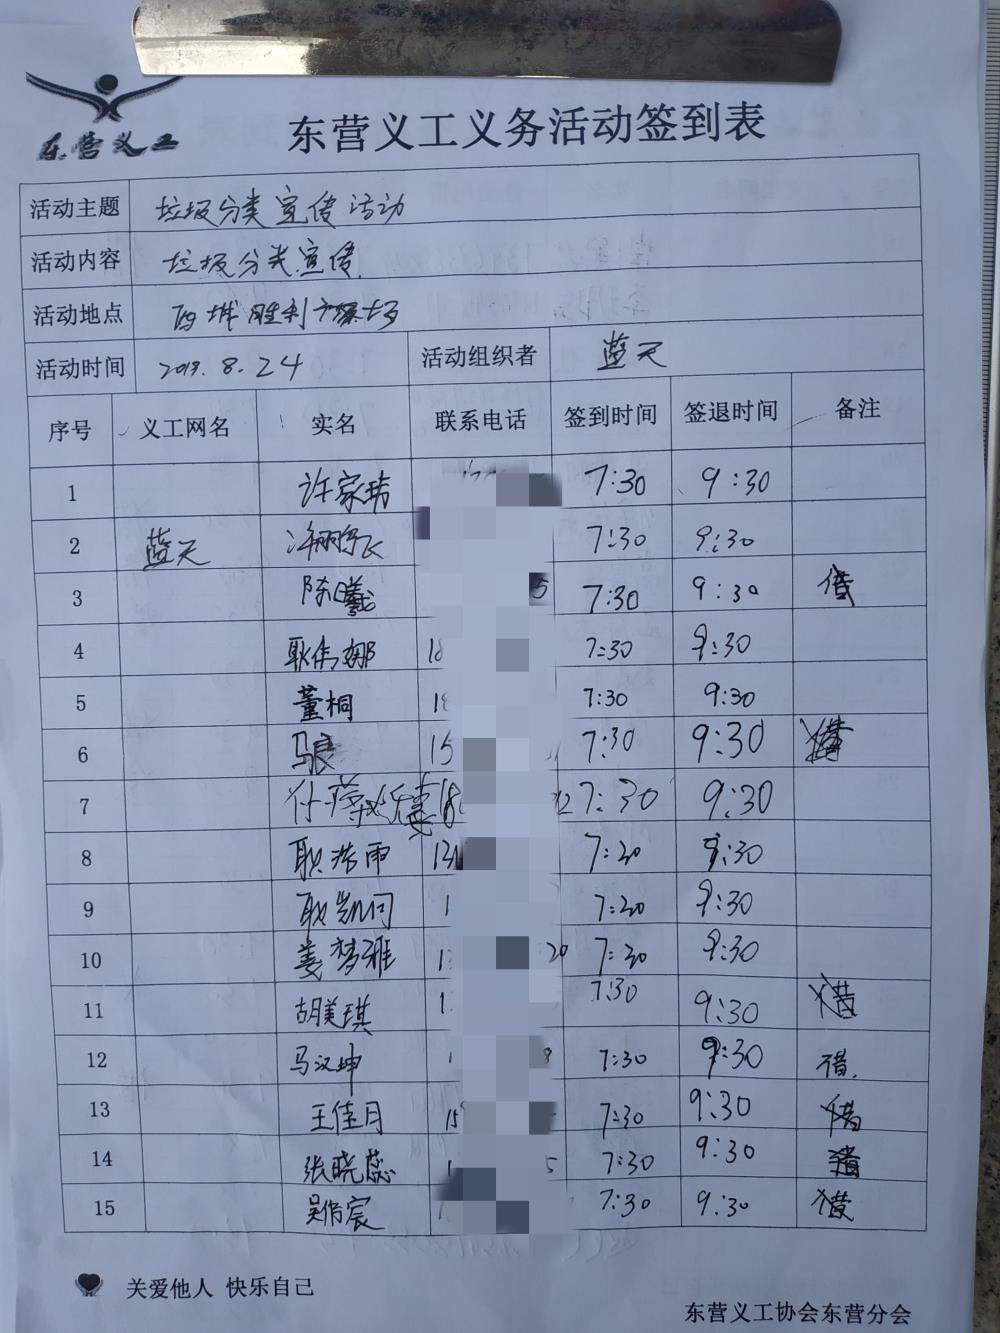 东营义工
东营义工义务活动签到表
活动主题 垃圾分类宣传活动
活动内容 垃圾分类宣传
活动地点 西城胜利广场
活动时间 2019.8.24 活动组织者 蓝天
序号 义工网名 实名 联系电话 签到时间 签退时间 备注
1 许家 7:30 9:30
2 蓝天 7:30 9:30
3 陈曦 5 7:30 9:30 借
4 耿伟娜 18 7:30 9:30
5 董桐 18 7:30 9:30
6 马良 15 7:30 9:30
7 18 7:30 9:30
8 耿浩雨 7:20 9:30
9 耿凯 1 7:20 9:30
10 姜梦雅 20 7:20 9:30
11 胡美琪 1 7:30 9:30 借
12 马汉坤 7:30 9:30 借
13 王佳月 15 7:30 9:30 借
14 张晓蕊 5 7:30 9:30
15 吴伟宸 7:30 9:30 借
关爱他人 快乐自己
东营义工协会东营分会